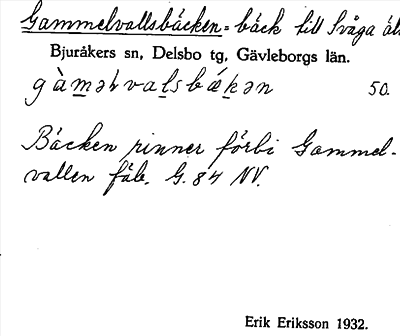 Gammelvallsbäcken = bäck till Svåga äl
Bjuråkers sn, Delsbo tg, Gävleborgs län.
50.
Bäcken rinner förbi Gammel-
vallen fäb. G. 84 NV.
Erik Eriksson 1932.